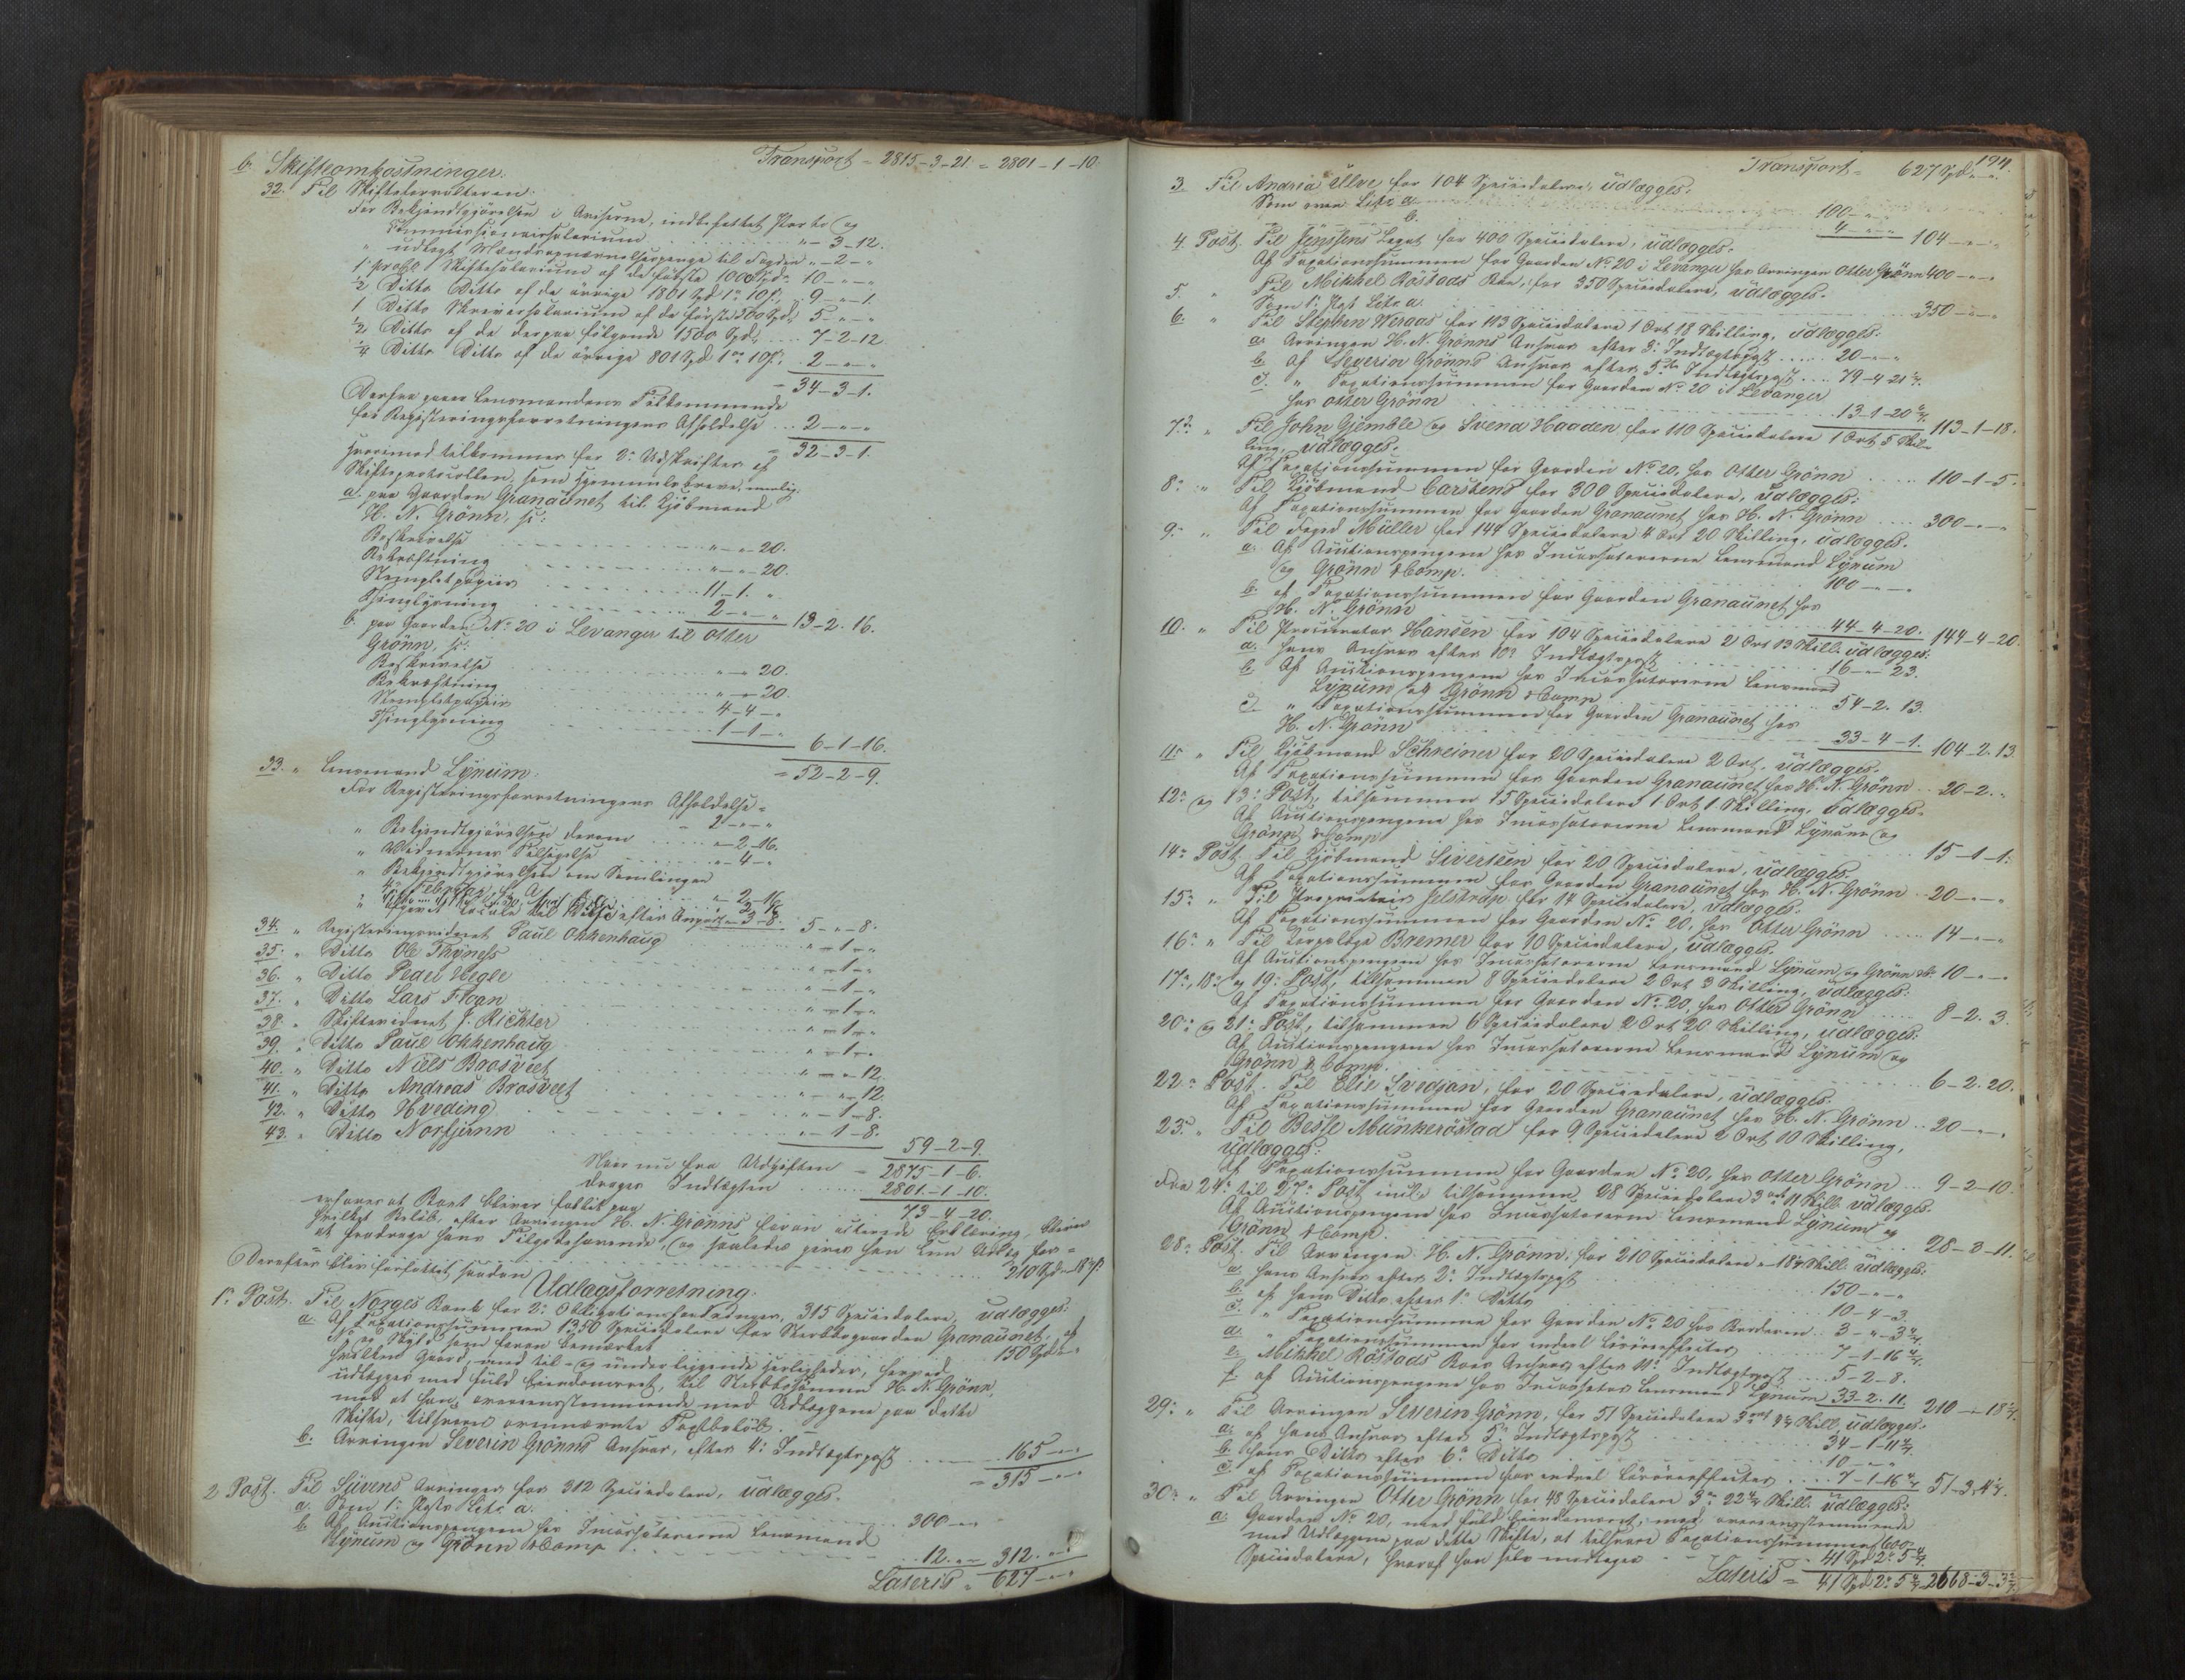 b. Skifteomkostninger. Transport = 2815-3-21. = 2801-1-10.
32. Til Skifteforvalteren:
For Bekjendtgjørelsen i Aviserne, indbefattet Porto og
Commissionairsalarium " - 3-12.
" udlagt til Fogden " - 2 - "
1 proCt. Skiftesalarium af de første 1000 Spd. 10 - " - "
½ Ditto Ditto af de øvrige 1801 Spd. 1 ort 10 s. 9 - " - 1.
1 Ditto Skriversalarium af de første 500 Spd. 5 - " - "
½ Ditto af de derpaa følgende 1500 Spd. 7-2-12
¼ Ditto Ditto af de øvrige 801 Spd 1 ort 10 s. 2 - " - "
= 34-3-1.
Derfra Lensmandens Tilkommende
for Registeringsforretningens Afholdelse 2 - " - "
= 32-3-1.
Hvorimod tilkommer for 2de Udskrifter af
Skifteprotocollen, som Hjemmelsbreve, nemlig:
a. paa Gaarden Granaunet til Kjöbmand
H. N. Grönn,
Beskrivelse " - " - 20.
Bekræftning " - " - 20.
Stemplet papiir 11-1. "
Thinglysning 2 - " - " 13-2.16.
b. paa Gaarden No. 20 i Levanger til Otter
Grönn,
Beskrivelse " - " 20.
Bekræftning " - " 20.
Stempletpapiir 4-4 - "
Thinglysning 1-1 - "
6-1-16.
= 52-2-9.
33. " Lensmand Lynum:
For Registeringsforretningens Afholdelse =
- 2 - " - "
" Bekjendtgjørelsen derom " - 2-16.
" Vidnernes Tilsigelse " - 4 - "
" Bekjendtgjørelsen om Samlingen
" - 2-16
efter Anpart " - 3-8. 5 - " - 8.
34. " Registeringsvidnet Paul Okkenhaug " - 1 - "
35. " Ditto Ole Thyness " - 1 - "
36. " Ditto Peder Hegle " - 1 - "
37. " Ditto Lars Floan " - 1 - "
38. " Skiftevidnet J. Richter " - 1 - "
39. " Ditto Paul Okkenhaug " - 1 - "
40. " Ditto Niels Braasveet " - " - 12.
41. " Ditto Andreas Brasveet " - " - 12.
42. " Ditto Hveding " - 1-8.
43. " Ditto Norbjenn " - 1-8.
59-2-9.
Naar nu fra Udgiften = 2875-1-6.
drages Indtægten 2801-1-10.
erfares at Boet bliver fallit paa 73-4-20.
hvilket Beløb, efter Arvingen H. N. Grönns foran citerede Erklæring, bliver
at fradrage hans Tilgodehavende, og saaledes gives han kun Udlæg for =
210 Spd
Derefter blev forfattet saadan Udlægsforretning.
1e Post. Til Norges Bank for 2de Obligationsfordringer, 315 Speciedalere, udlægges:
a. Af Taxationssummen 1350 Speciedalere for Sterbbogaarden Granaunet, af
No. og Skyld som foran bemærket 150 Spd - "
hvilken Gaard, med til- og underliggende Herligheder, herved
udlægges med fuld Eiendomsret, til Sterbbosönnen H. N. Grönn,
mod at han, overeensstemmende med Udlæggene paa dette
Skifte, tilsvarer ovennævnte Taxtbeløb.
b. Arvingen Severin Grönns Ansvar, efter 4. Indtægtspost 165 - "
= 315 - " - "
2 Post. Til Sivens Arvinger for 312 Speciedalere, udlægges.
a. Som 1e Post Litr. a. 300 - "
b. Af Auctionspengene hos Incassatorerne Lensmand
Lynum og Grönn & Comp. 12. " - 312. " - "
Lateris = 627 - " - "
194.
Transport = 627 Spd - " - "
3. Til Andria Ulve for 104 Speciedalere, udlægges.
Som oven Litr. a. 100 - " - "
b. 4 - " - " 104 - " - "
4. Post. Til Jenssens Legat for 400 Speciedalere, udlægges:
Af Taxationssummen for Gaarden No. 20 i Levanger hos Arvingen Otter Grönn 400 - " - "
5. " Til Mikkel Röstads Boe, for 350 Speciedalere, udlægges.
Som 1. Post Litr. a. 350 - " - "
6. " Til Stephen Weraas for 113 Speciedalere 1 Ort 18 Skilling, udlægges:
a. Arvingen H. N. Grönns Ansvar efter 3. Indtægtspost 20 - " - "
b. af Severin Grönns Ansvar efter 5te Indtægtspost 79-4-21
c. " Taxationssummen for Gaarden No. 20 i Levanger
hos Otter Grönn 13-1-20 113-1-18.
7de " Til John Gjemble og Svend Haaden for 110 Speciedalere 1 Ort 5 Skil-
ling, udlægges.
Af Taxationssummen for Gaarden No. 20, hos Otter Grönn 110-1-5.
8. " Til Kjöbmand Carstens for 300 Speciedalere, udlægges:
Af Taxationssummen for Gaarden Granaunet hos H. N. Grönn 300 - " - "
9. " Til Foged Müller for 144 Speciedalere 4 Ort 20 Skilling, udlægges.
a. Af Auctionspengene hos Incassatorerne Lensmand Lynum
og Grönn & Comp. 100 - " - "
b. af Taxationssummen for Gaarden Granaunet hos
H. N. Grönn 44-4-20. 144-4-20.
10. " Til Procurator Hansen for 104 Speciedalere 2 Ort 13 Skill. udlægges:
a. hans Ansvar efter 10. Indtægtspost 16 - " 23.
b. Af Auctionspengene hos Incassatorerne Lensmand
Lynum og Grönn & Comp. 54-2.13.
c. " Taxationssummen for Gaarden Granaunet hos
H. N. Grönn 33-4-1. 104-2.13.
11. " Til Kjöbmand Schreiner for 20 Speciedalere 2 Ort, udlægges.
Af Taxationssummen for Gaarden Granaunet hos H. N. Grönn 20-2. "
12. og 13. Post, tilsammen 15 Speciedalere 1 Ort 1 Skilling, udlægges.
Af Auctionspengene hos Incassatorerne Lensmand Lynum og
Grönn & Comp. 15-1-1.
14. Post Til Kjöbmand Sivertsen for 20 Speciedalere, udlægges.
Af Taxationssummen for Gaarden Granaunet hos H. N. Grönn 20 - " - "
15. " Til Proprietair Jelstrup for 14 Speciedalere, udlægges:
Af Taxationssummen for Gaarden No. 20, hos Otter Grönn 14 - " - "
16. " Til Corpslæge Bremer for 10 Speciedalere, udlægges.
Af Auctionspengene hos Incassatorerne Lensmand Lynum og Grönn & Co 10 - " - "
17., 18. og 19. Post, tilsammen 8 Speciedalere 2 Ort 3 Skilling, udlægges:
Af Taxationssummen for Gaarden No. 20, hos Otter Grönn 8-2.3.
20. og 21. Post, tilsammen 6 Speciedalere 2 Ort 20 Skilling, udlægges:
Af Auctionspengene hos Incassatorerne Lensmand Lynum og
Grönn & Comp. 6-2.20.
22. Post. Til Elie Svedjan, for 20 Speciedalere, udlægges
Af Taxationssummen for Gaarden Granaunet hos H. N. Grönn 20 - " - "
23. " Til Besle Munkeröstad for 9 Speciedalere 2 Ort 10 Skilling,
udlægges:
Af Taxationssummen for Gaarden No. 20, hos Otter Grönn 9-2-10.
Fra 24. til 27. Post incl. tilsammen 28 Speciedalere 3 ort 11 Skill. udlægges.
Af Auctionspengene hos Incassatorerne Lensmand Lynum og
Grönn & Comp. 28-3-11.
28. Post. Til Arvingen H. N. Grönn, for 210 Speciedalere " 18 Skill. udlægges:
a. hans Ansvar efter 2. Indtægtspost 150 - " - "
b. af hans Ditto efter 1e Ditto 10-4-3.
c. " Taxationssumma for Gaarden No. 20 hos Broderen 3 - " - 3
d. " Taxationssummen for endeel Löösöreeffecter 7-1-16
e. Mikkel Röstads Boes Ansvar efter 11. Indtægtspost 5-2-8.
f. af Auctionspengene hos Incassator Lensmand Lynum 33-2.11. 210 - " - 18
29. " Til Arvingen Severin Grönn, for 51 Speciedalere 3 ort Skill. udlægges.
a. af hans Ansvar efter 5. Indtægtspost 34-1-11
b. hans Ditto efter 6. Ditto 10 - " - "
c. af Taxationssummen for endeel Löösöreeffecter 7-1-16 51-3-4
30. " Til Arvingen Otter Grönn for 48 Speciedalere 3 ort 22 Skill. udlægges:
a. Gaarden No. 20, med fuld Eiendomsret, mod overeensstemmende
med Udlæggene paa dette Skifte, at tilsvare Taxationssummen 600
Speciedalere, hvoraf han selv modtager 41 Spd 2. 5
Lateris = 41 Spd 2. 5 2668-3-3